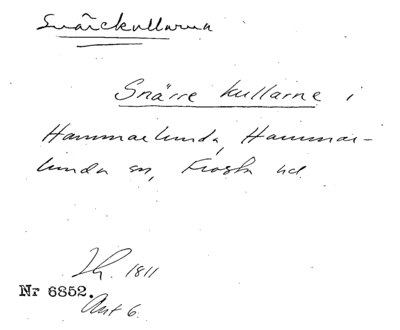 Snärckullarna
Snärre kullarne i
Hammarlunda, Hammar-
lunda sn, Frosta hd
1811
Nr 6852.
Akt 6.